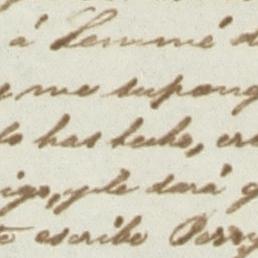 á Lemmé d
y me supong
lo has hecho, cre
igo, y le dará g
te escribe Perry